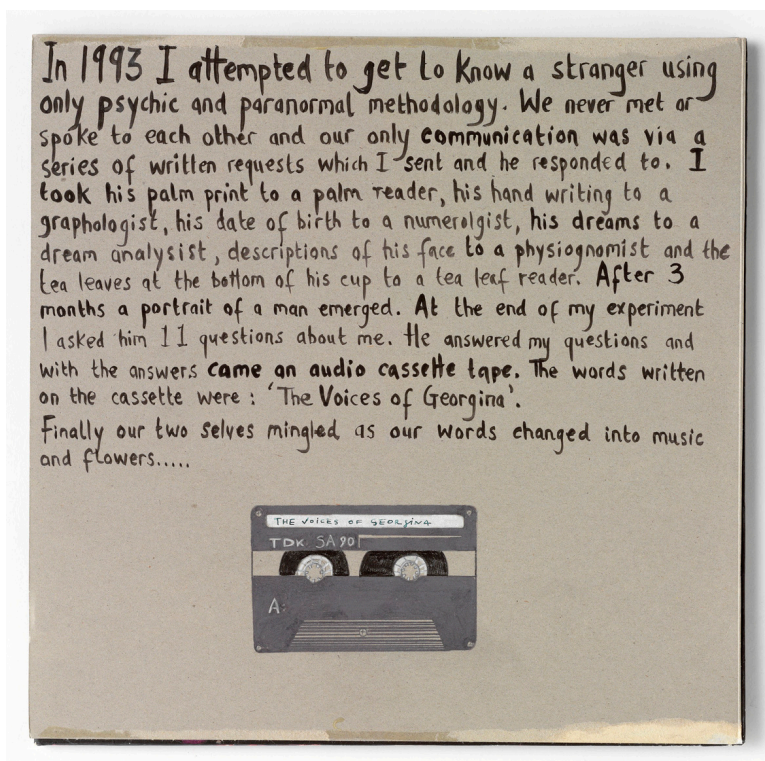 In 1993 I attempted to get to know a stranger using
only psychic and paranormal methodology. We never met or
spoke to each other and our only communication was via a
series of written requests which I sent and he responded to. I
took his palm print to a palm reader, his hand writing to a
graphologist, his date of birth to a numerolgist, his dreams to a
dream analysist, descriptions of his face to a physiognomist and the
tea leaves at the bottom of his cup to a tea leaf reader. After 3
months a portrait of a man emerged. At the end of my experiment
I asked him 11 questions about me. He answered my questions and
with the answers came an audio cassette tape. The words written
on the cassette were : 'The Voices of Georgina'.
Finally our two selves mingled as our words changed into music
and flowers.....
THE VOICES OF GEORGINA
TDK SA90
A: